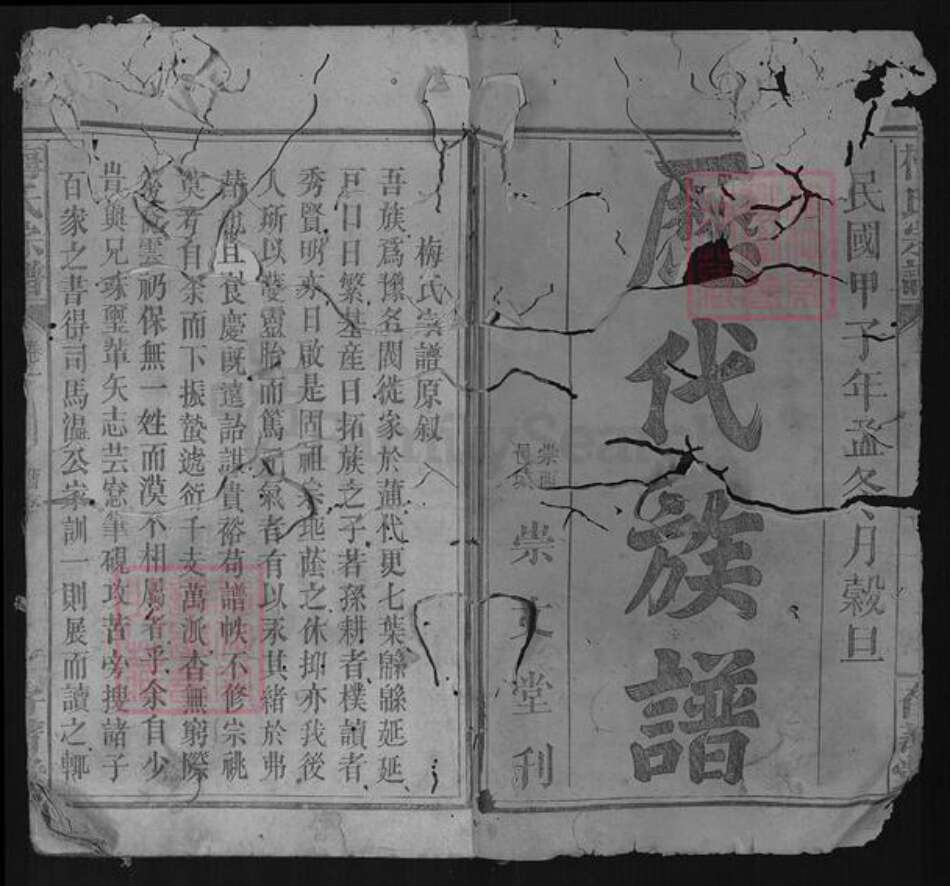 民國甲子年孟冬月穀旦
歷代族譜
崇文堂刊
梅氏宗譜
梅氏宗譜原叙
吾族爲豫名閥從家於蒲代更七葉緜緜延延
戸口日繁基産日拓族之子若孫耕者樸讀者
秀賢明亦日啟是固祖宗丕蔭之休抑亦我後
人所以蔓靈胎而篤元氣者有以承其緒於弗
替也且食慶旣遠詒謀貴裕苟譜帙不修宗祧
莫考自茲而下振蟄遞衍千支萬派杳無窮際
後裔雲礽保無一姓而漠不相屬者乎余自少
嘗與兄 璽輩矢志芸窓筆硯攻苦旁搜諸子
百家之書得司馬温公家訓一則展而讀之輒
梅氏宗譜